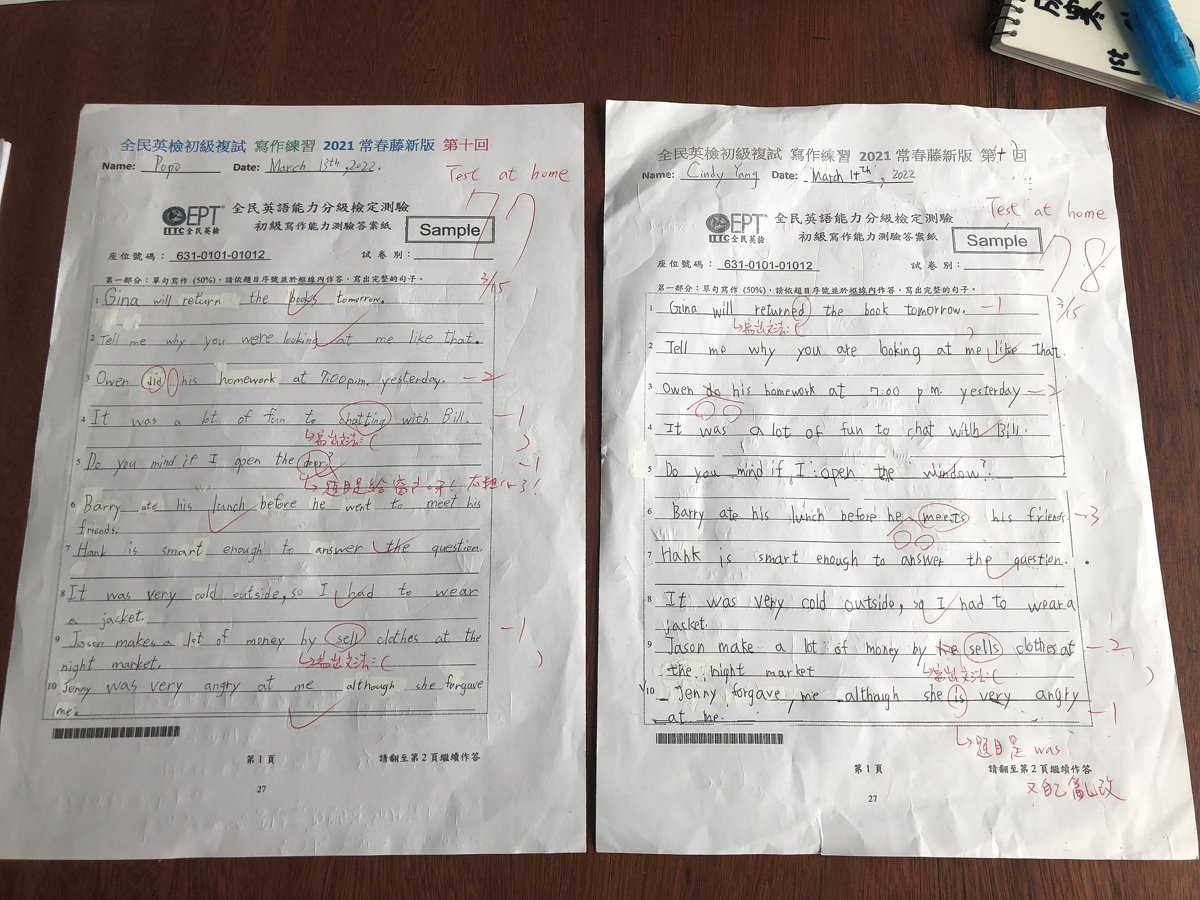 全民英檢初級複試 寫作練習 2021 常春藤新版 第十回
Name: Popo Date: March 13th, 2022.
Test at home
77
GEPT
LTTC 全民英檢
全民英語能力分級檢定測驗
初級寫作能力測驗答案紙
Sample
座位號碼： 631-0101-01012 試卷別：
3/15
第一部分：單句寫作 (50%)，請依題目序號並於框線內作答，寫出完整的句子。
1 Gina will return the books tomorrow.
2 Tell me why you were looking at me like that.
3 Owen did his homework at 7:00 p.m. yesterday. -2
4 It was a lot of fun to chatting with Bill. -1
↳寫出文法:( )
5 Do you mind if I open the door? -1
↳題目是給窗戶
6 Barry ate his lunch before he went to meet his
friends.
7 Hank is smart enough to answer the question.
8 It was very cold outside, so I had to wear
a jacket.
9 Jason makes a lot of money by sell clothes at the -1
night market. ↳寫出文法:( )
10 Jenny was very angry at me although she forgave
me.
第 1 頁 請翻至第 2 頁繼續作答
27
全民英檢初級複試 寫作練習 2021 常春藤新版 第十回
Name: Cindy Yang Date: March 14th, 2022
Test at home
78
GEPT
LTTC 全民英檢
全民英語能力分級檢定測驗
初級寫作能力測驗答案紙
Sample
座位號碼： 631-0101-01012 試卷別：
第一部分：單句寫作 (50%)，請依題目序號並於框線內作答，寫出完整的句子。
3/15
1 Gina will returned the book tomorrow. -1
↳寫出文法:( )
2 Tell me why you are looking at me like that.
3 Owen do his homework at 7:00 p.m. yesterday -2
4 It was a lot of fun to chat with Bill.
5 Do you mind if I open the window?
6 Barry ate his lunch before he meets his friends -3
7 Hank is smart enough to answer the question.
8 It was very cold outside, so I had to wear a
jacket.
9 Jason make a lot of money by sells clothes at -2
the night market ↳寫出文法:( )
10 Jenny forgave me although she is very angry
at me. -1
↳題目是 was
又自己亂改
第 1 頁 請翻至第 2 頁繼續作答
27
1st